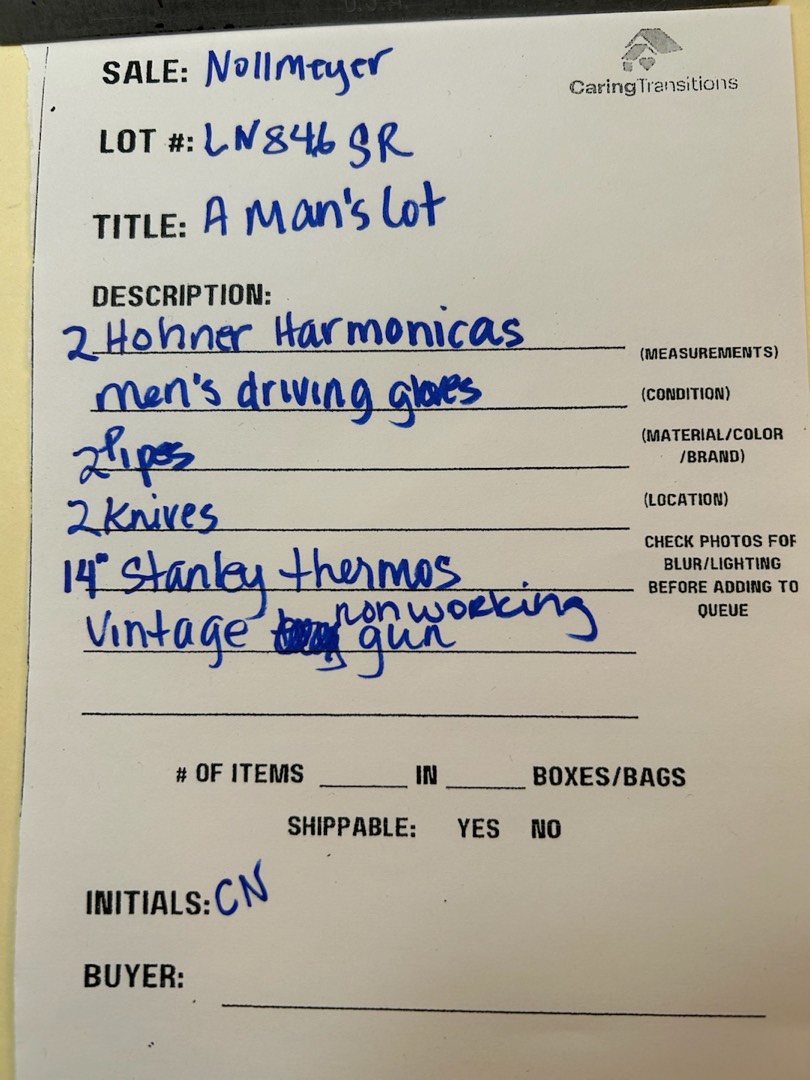 SALE: Nollmeyer
CaringTransitions
LOT #: LN846 SR
TITLE: A Man's Lot
DESCRIPTION:
2 Hohner Harmonicas
(MEASUREMENTS)
men's driving gloves
(CONDITION)
2 Pipes
(MATERIAL/COLOR
/BRAND)
2 Knives
(LOCATION)
14" Stanley thermos
CHECK PHOTOS FOR
BLUR/LIGHTING
BEFORE ADDING TO
QUEUE
Vintage non working gun
# OF ITEMS ______ IN ______ BOXES/BAGS
SHIPPABLE: YES NO
INITIALS: CN
BUYER: